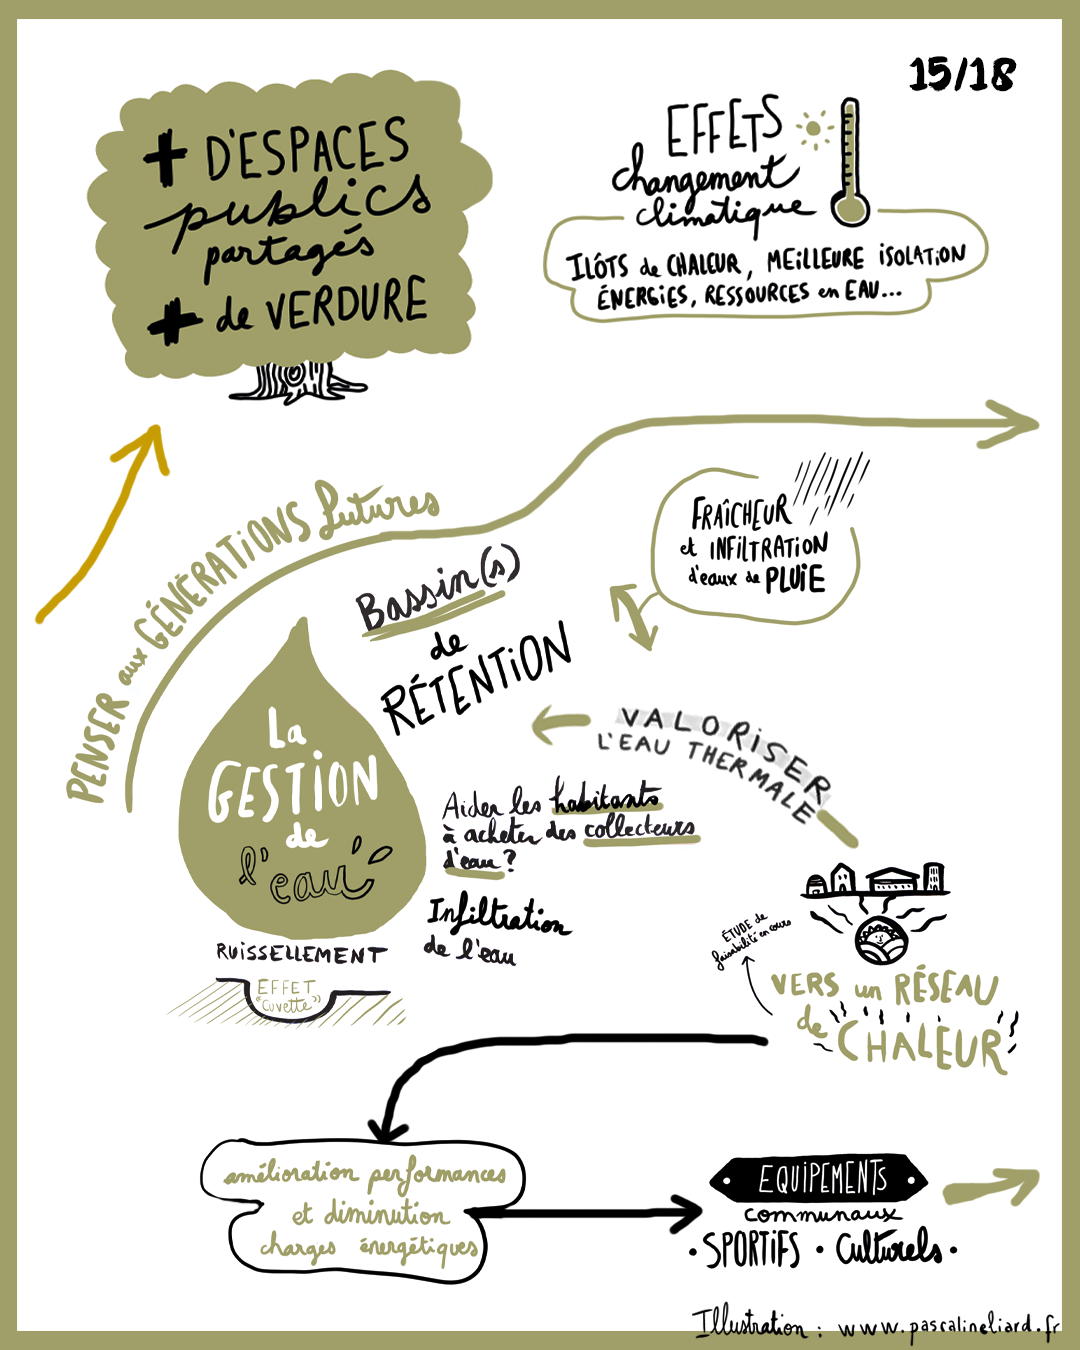 15/18
+ D'ESPACES
publics
partagés
+ de VERDURE
EFFETS
changement
climatique
ILÔTS de CHALEUR, MEILLEURE ISOLATION
ÉNERGIES, RESSOURCES en EAU...
PENSER aux GÉNÉRATIONS futures
FRAÎCHEUR
et INFILTRATION
d'eaux de PLUIE
Bassin(s)
de
RÉTENTION
La
GESTION
de
l'eau
VALORISER
L'EAU THERMALE
Aider les habitants
à acheter des collecteurs
d'eau ?
Infiltration
de l'eau
RUISSELLEMENT
EFFET
"Cuvette"
ÉTUDE de
faisabilité en cours
VERS un RÉSEAU
de CHALEUR
amélioration performances
et diminution
charges énergétiques
EQUIPEMENTS
communaux
• SPORTIFS • Culturels •
Illustration : www.pascalineliard.fr